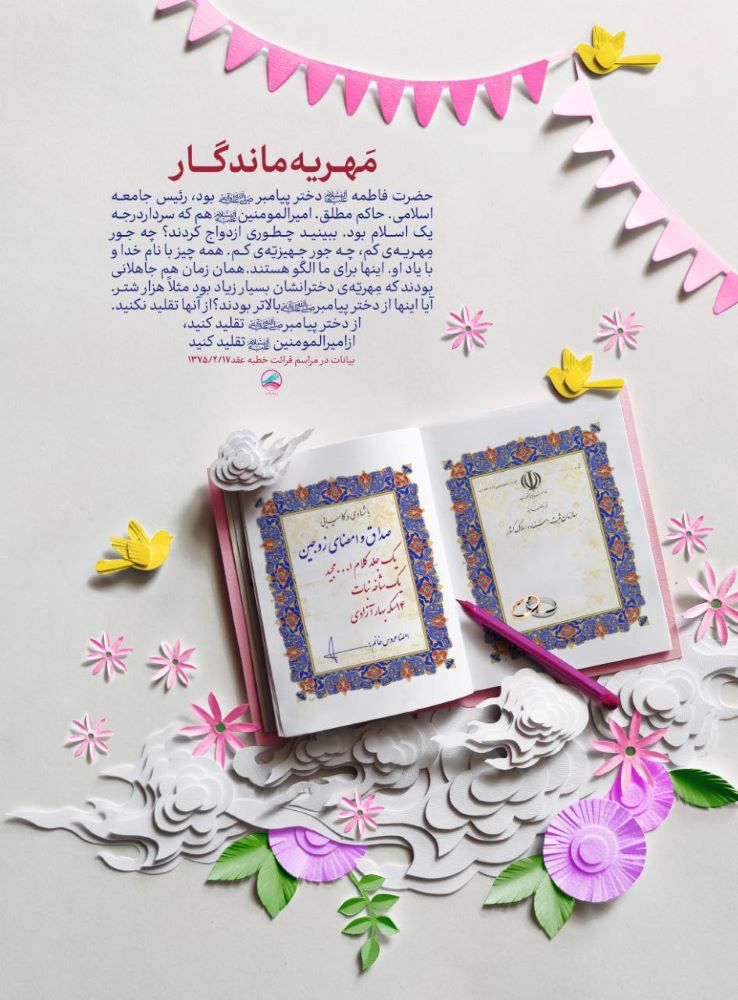 مَهریه‌ماندگار
حضرت فاطمه علیهاالسلام دختر پیامبر صلی‌الله‌علیه‌وآله بود، رئیس جامعه
اسلامی. حاکم مطلق. امیرالمومنین علیه‌السلام هم که سرداردرجه
یک اسلام بود. ببینید چطوری ازدواج کردند؟ چه جور
مِهریه‌ی کم، چه جور جهیزیّه‌ی کم. همه چیز با نام خدا و
با یاد او. اینها برای ما الگو هستند.همان زمان هم جاهلانی
بودند که مِهریّه‌ی دخترانشان بسیار زیاد بود مثلاً هزار شتر.
آیا اینها از دختر پیامبر صلی‌الله‌علیه‌وآله بالاتر بودند؟از آنها تقلید نکنید.
از دختر پیامبر صلی‌الله‌علیه‌وآله تقلید کنید،
ازامیرالمومنین علیه‌السلام تقلید کنید
بیانات در مراسم قرائت خطبه عقد۱۳۷۵/۲/۱۷
با شادی و کامیابی
صداق و امضای زوجین
یک جلد کلام ا... مجید
یک شاخه نبات
۱۴ سکه بهار آزادی
امضا عروس خانم
سازمان ثبت اسناد و املاک کشور